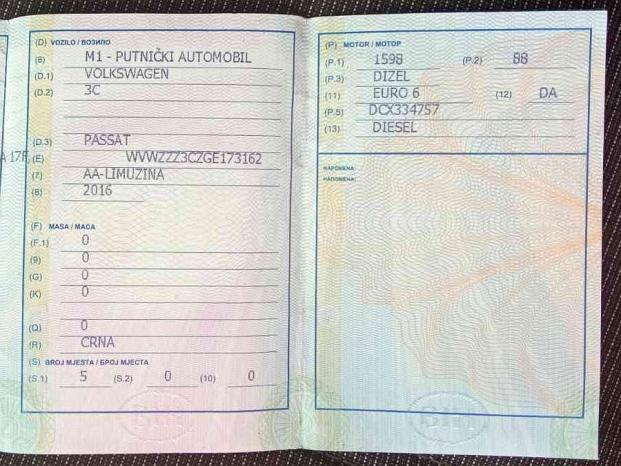 (D) VOZILO / ВОЗИЛО
(8) M1 - PUTNIČKI AUTOMOBIL
(D.1) VOLKSWAGEN
(D.2) 3C
(D.3) PASSAT
A 17F,(E) WVWZZZ3CZGE173162
(7) AA-LIMUZINA
(8) 2016
(F) MASA / МАСА
(F.1) 0
(9) 0
(G) 0
(K) 0
(Q) 0
(R) CRNA
(S) BROJ MJESTA / БРОЈ МЈЕСТА
(S.1) 5 (S.2) 0 (10) 0
(P) MOTOR / МОТОР
(P.1) 1598 (P.2) 88
(P.3) DIZEL
(11) EURO 6 (12) DA
(P.5) DCX334757
(13) DIESEL
NAPOMENA:
НАПОМЕНА:
BIH
BIH